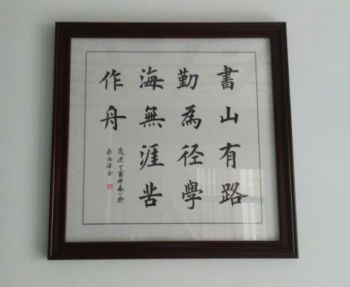 書山有路
勤為径學
海無涯苦
作舟